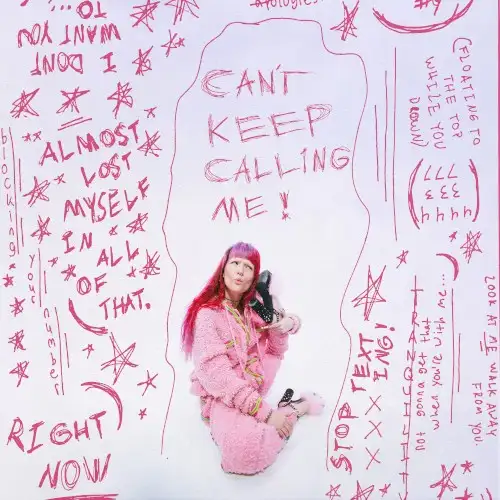 I DONT
WANT YOU
TO...
apologies.
CAN'T
KEEP
CALLING
ME!
ALMOST
LOST
MYSELF
IN ALL
OF
THAT.
blocking
your
number
RIGHT
NOW
(FLOATING TO
THE TOP
WHILE YOU
DROWN)
444
333
777
LOOK AT ME WALK AWAY
FROM YOU.
not gonna get that
when you're with me...
STOP TEXT
ING!
XXX